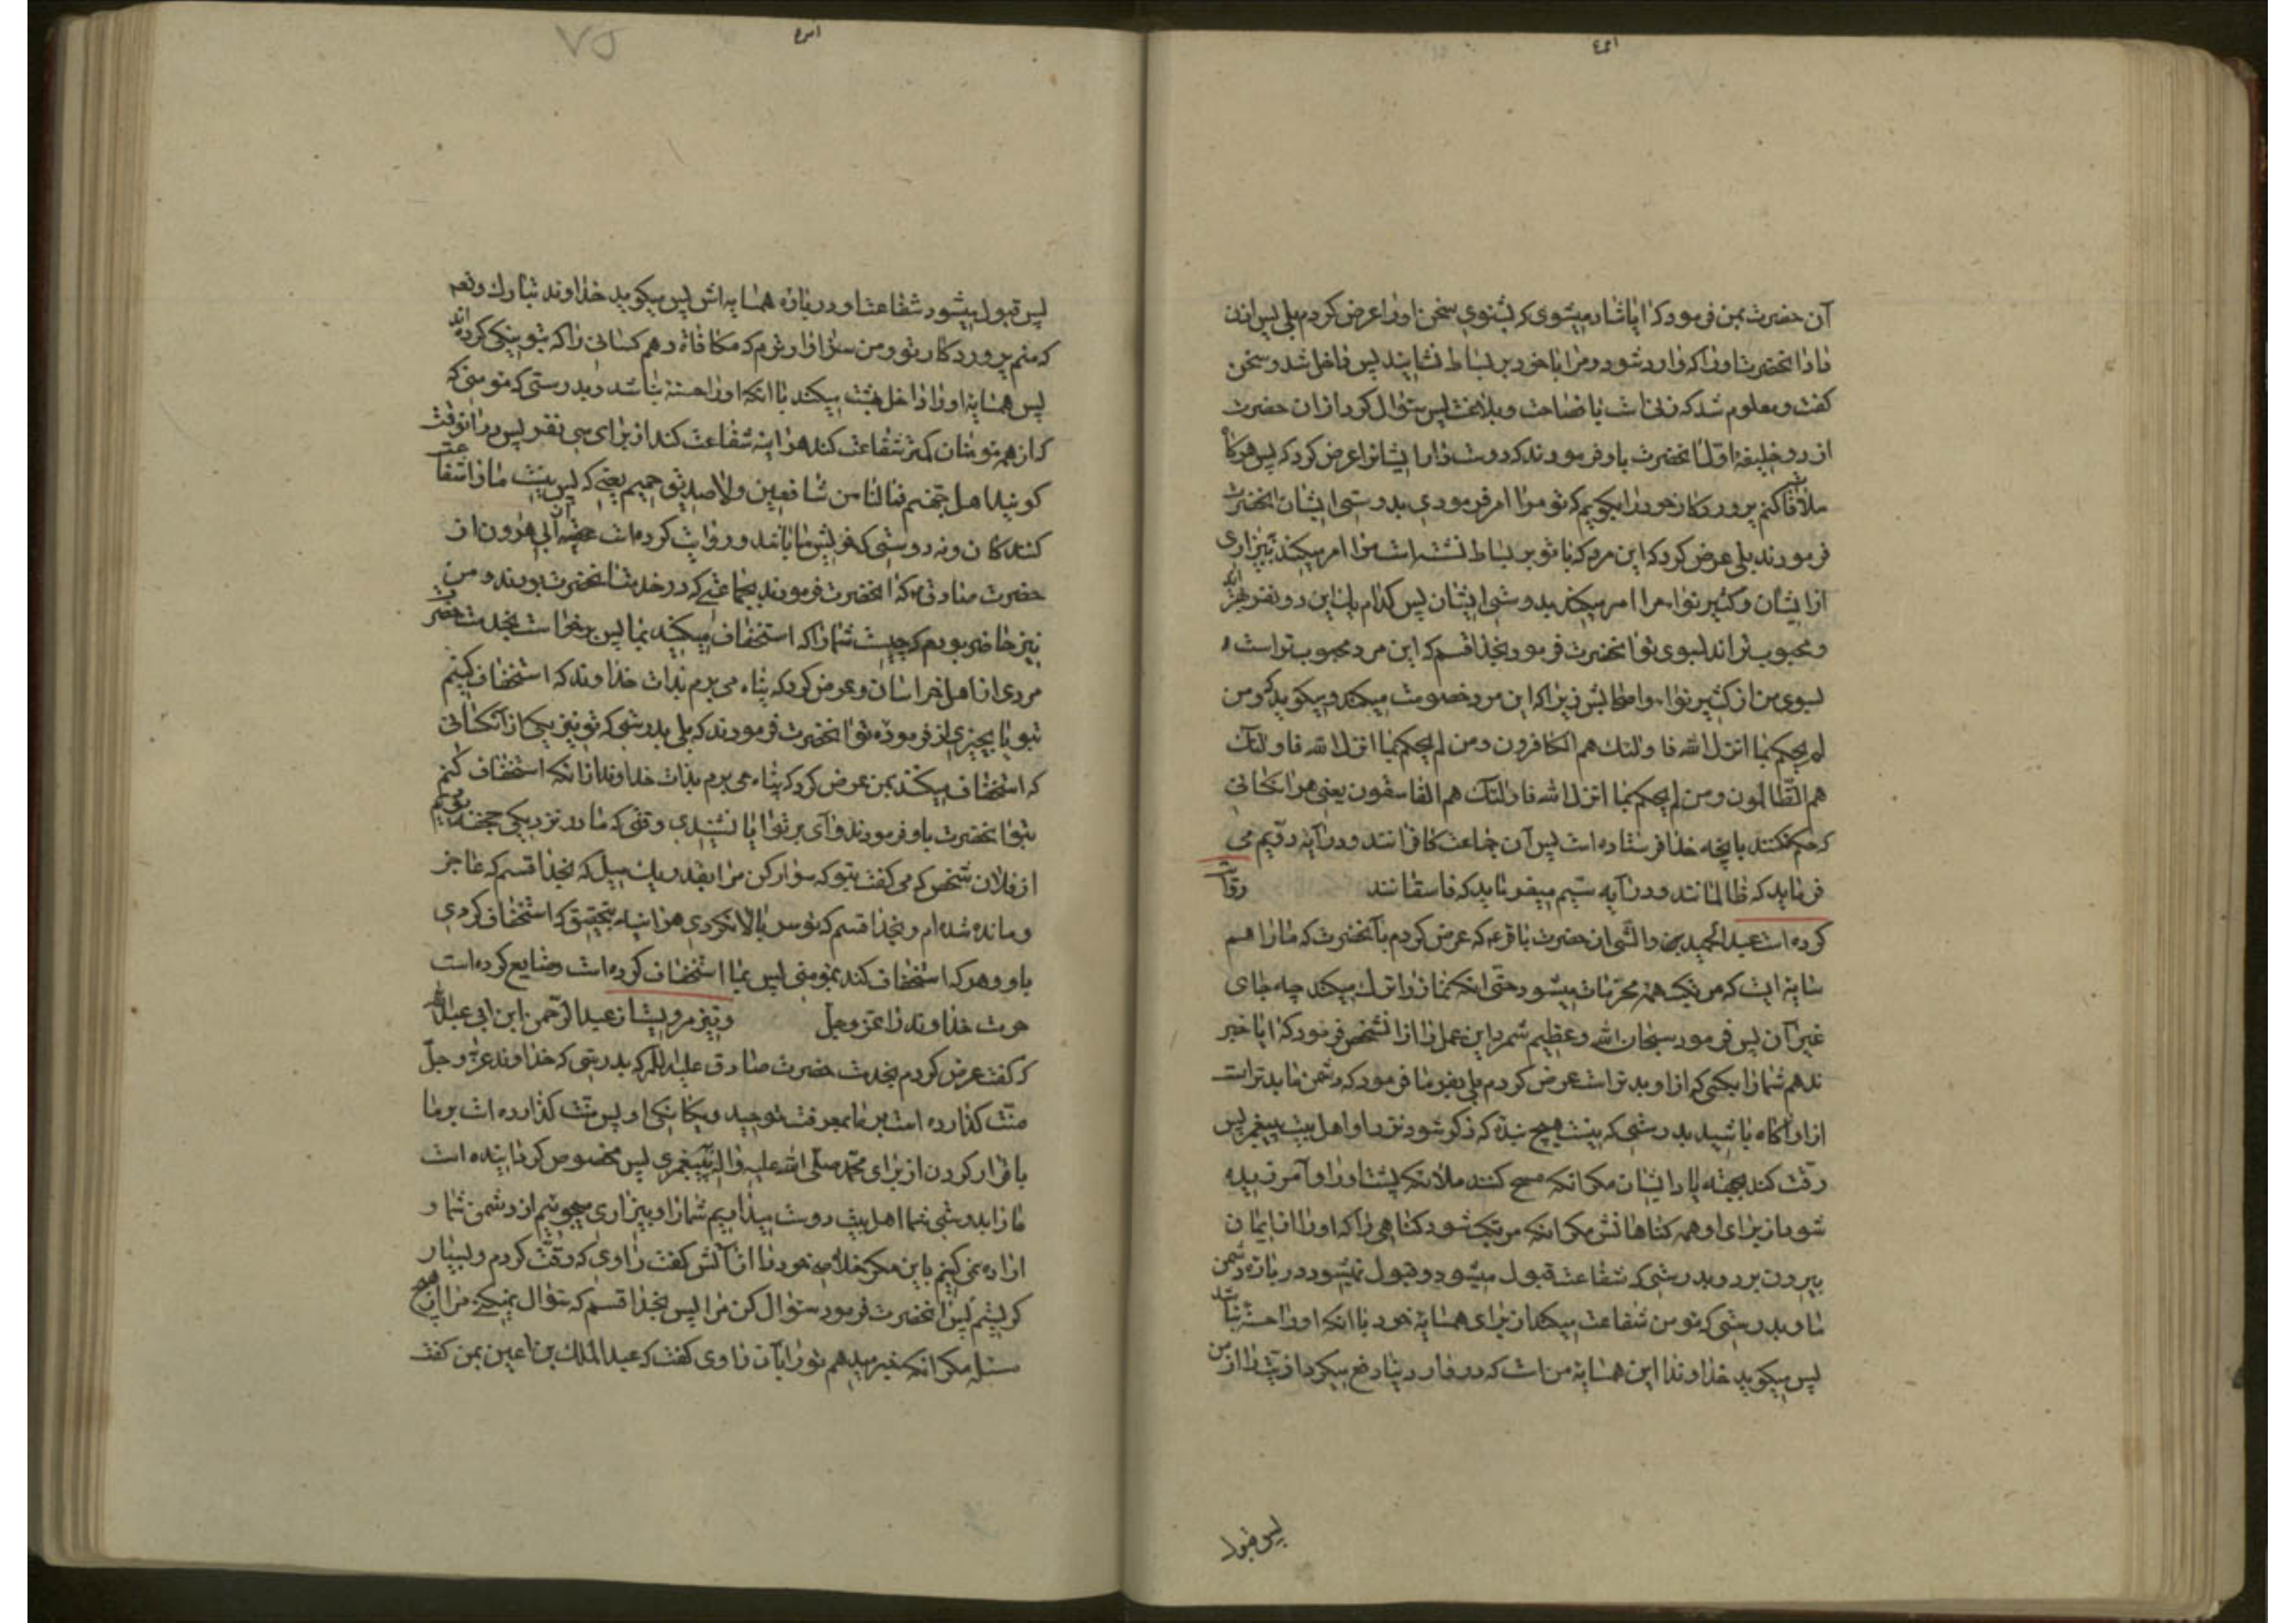 آن حضرت بمن فرمود که ایا شاد میشوی که بشنوی سخن او را عرض کردم بلی پس اذن
داد انحضرت او را که وارد شود و مرا با خود بر بساط نشانید پس داخل شد و سخن
کفت و معلوم شد که زنی است با فصاحت و بلاغت پس سؤال کرد از ان حضرت
از دو خلیفه اول انحضرت باو فرمودند که دوست دار ایشانرا عرض کرد که پس هرکاه
ملاقات کنم پروردکار خود را بکویم که تو مرا امر فرمودی بدوستی ایشان انحضرت
فرمودند بلی عرض کرد که این مرد که با تو بر بساط نشسته است مرا امر میکند به بیزاری
از ایشان و کثیر نوا مرا امر میکند بدوستی ایشان پس کدام یک این دو نفر بهتر
و محبوب تر اند بسوی تو انحضرت فرمود بخدا قسم که این مرد محبوب تر است
بسوی من از کثیر نوا و اصحابش زیرا که این مرد خصومت میکند و میکوید که و من
لم یحکم بما انزل الله فاولئک هم الکافرون و من لم یحکم بما انزل الله فاولئک
هم الظالمون و من لم یحکم بما انزل الله فاولئک هم الفاسقون یعنی هر انکسانی
که حکم نکنند بانچه خدا فرستاده است پس آن جماعت کافرانند و در آیه دویم می
فرماید که ظالمانند و در آیه سیم میفرماید که فاسقانند وروایت
کرده است عبد الحمید بن والشی از حضرت باقر ع که عرض کردم بآنحضرت که ما را هم
سایه ایست که مرتکب همه محرمات میشود حتی انکه نماز را ترک میکند چه جای
غیر آن پس فرمود سبحان الله و عظیم شمرد این عمل را از انشخص فرمود که ایا خبر
ندهم شما را بکسی که از او بدتر است عرض کردم بلی بفرما فرمود که دشمن ما بدتر است
از او آکاه باشید بدرستی که نیست هیچ بنده که ذکر شود نزد او اهل بیت پیغمبر پس
رقت کند بجهة یاد ایشان مکر انکه مسح کنند ملائکه پشت او را و آمرزیده
شود از برای او همه کناهانش مکر انکه مرتکب شود کناهی را که او را از ایمان
بیرون برد و بدرستی که شفاعت قبول میشود و قبول نمیشود در باره دشمن
ما و بدرستی که مومن شفاعت میکند از برای همسایه خود با انکه او را حسنه نباشد
پس میکوید خداوندا این همسایه من است که در دار دنیا دفع میکرد اذیت را از من
پس قبول
پس قبول میشود شفاعت او در باره همسایه اش پس میکوید خداوند تبارک و تعم
که منم پروردکار تو و من سزاوارترم که مکافاة دهم کسانی را که بتو نیکی کرده اند
پس همسایه او را داخل بهشت میکند با انکه او را حسنه نباشد و بدرستی که مومنی که
که از همه مومنان کمتر شفاعت کند هر اینه شفاعت کند از برای سی نفر پس در انوقت
کویند اهل جهنم فما لنا من شافعین ولا صدیق حمیم یعنی که پس نیست ما را شفاعت
کنندکان و نه دوستی که خویش ما باشد و روایت کرده است ابی هرون از
حضرت صادق ع که انحضرت فرمودند بجماعتی که در خدمت انحضرت بودند و من
نیز حاضر بودم که چیست شما را که استخفاف میکنید بما پس برخواست بخدمت حضرت
مردی از اهل خراسان و عرض کرد که پناه می برم بذات خداوند که استخفاف کنیم
بتو یا بچیزی از فرموده تو انحضرت فرمودند که بلی بدرستی که تو نیز یکی از آنکسانی
که استخفاف میکند بمن عرض کرد که پناه می برم بذات خداوند از انکه استخفاف کنم
بتو انحضرت باو فرمودند وای بر تو ایا نشنیدی وقتی که ما در نزدیکی جحفه بودیم
از فلان شخص که می کفت بتو که سوار کن مرا بقدر یک میل که بخدا قسم که عاجز
و مانده شده ام و بخدا قسم که تو سر بالا نکردی هر اینه بتحقیق که استخفاف کردی
باو و هر که استخفاف کند بمومنی پس بما استخفاف کرده است و ضایع کرده است
حرمت خداوند را عز و جل و نیز مرویست از عبد الرحمن ابن ابی عبد الله
که کفت عرض کردم بخدمت حضرت صادق علیه السلام که بدرستی که خداوند عز و جل
منت کذارده است بر ما بمعرفت توحید و یکانکی او پس منت کذارده است بر ما
باقرار کردن از برای محمد صلی الله علیه واله به پیغمبری پس مخصوص کردانیده است
ما را بدوستی شما اهل بیت دوست میداریم شما را و بیزاری میجوئیم از دشمن شما و
اراده نمی کنیم باین مکر خلاصه خود را از آتش کفت راوی که رقت کردم و بسیار
کریستم پس انحضرت فرمود سئوال کن مرا پس بخدا قسم که سئوال نمیکنی مرا از هیچ
مسئله مکر انکه خبر میدهم تو را بآن راوی کفت که عبد الملک بن اعین بمن کفت